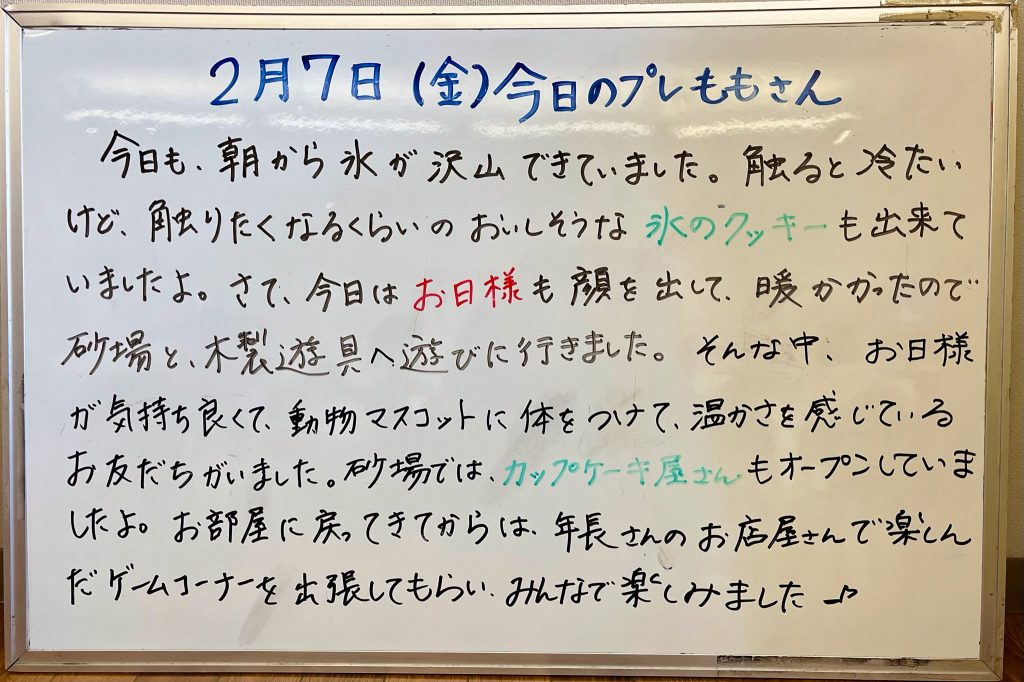 2月7日(金)今日のプレももさん
今日も、朝から氷が沢山できていました。触ると冷たい
けど、触りたくなるくらいのおいしそうな氷のクッキーも出来て
いましたよ。さて、今日はお日様も顔を出して、暖かかったので
砂場と、木製遊具へ遊びに行きました。そんな中、お日様
が気持ち良くて、動物マスコットに体をつけて、温かさを感じている
お友だちがいました。砂場では、カップケーキ屋さんもオープンしていま
したよ。お部屋に戻ってきてからは、年長さんのお店屋さんで楽しん
だゲームコーナーを出張してもらい、みんなで楽しみました♪